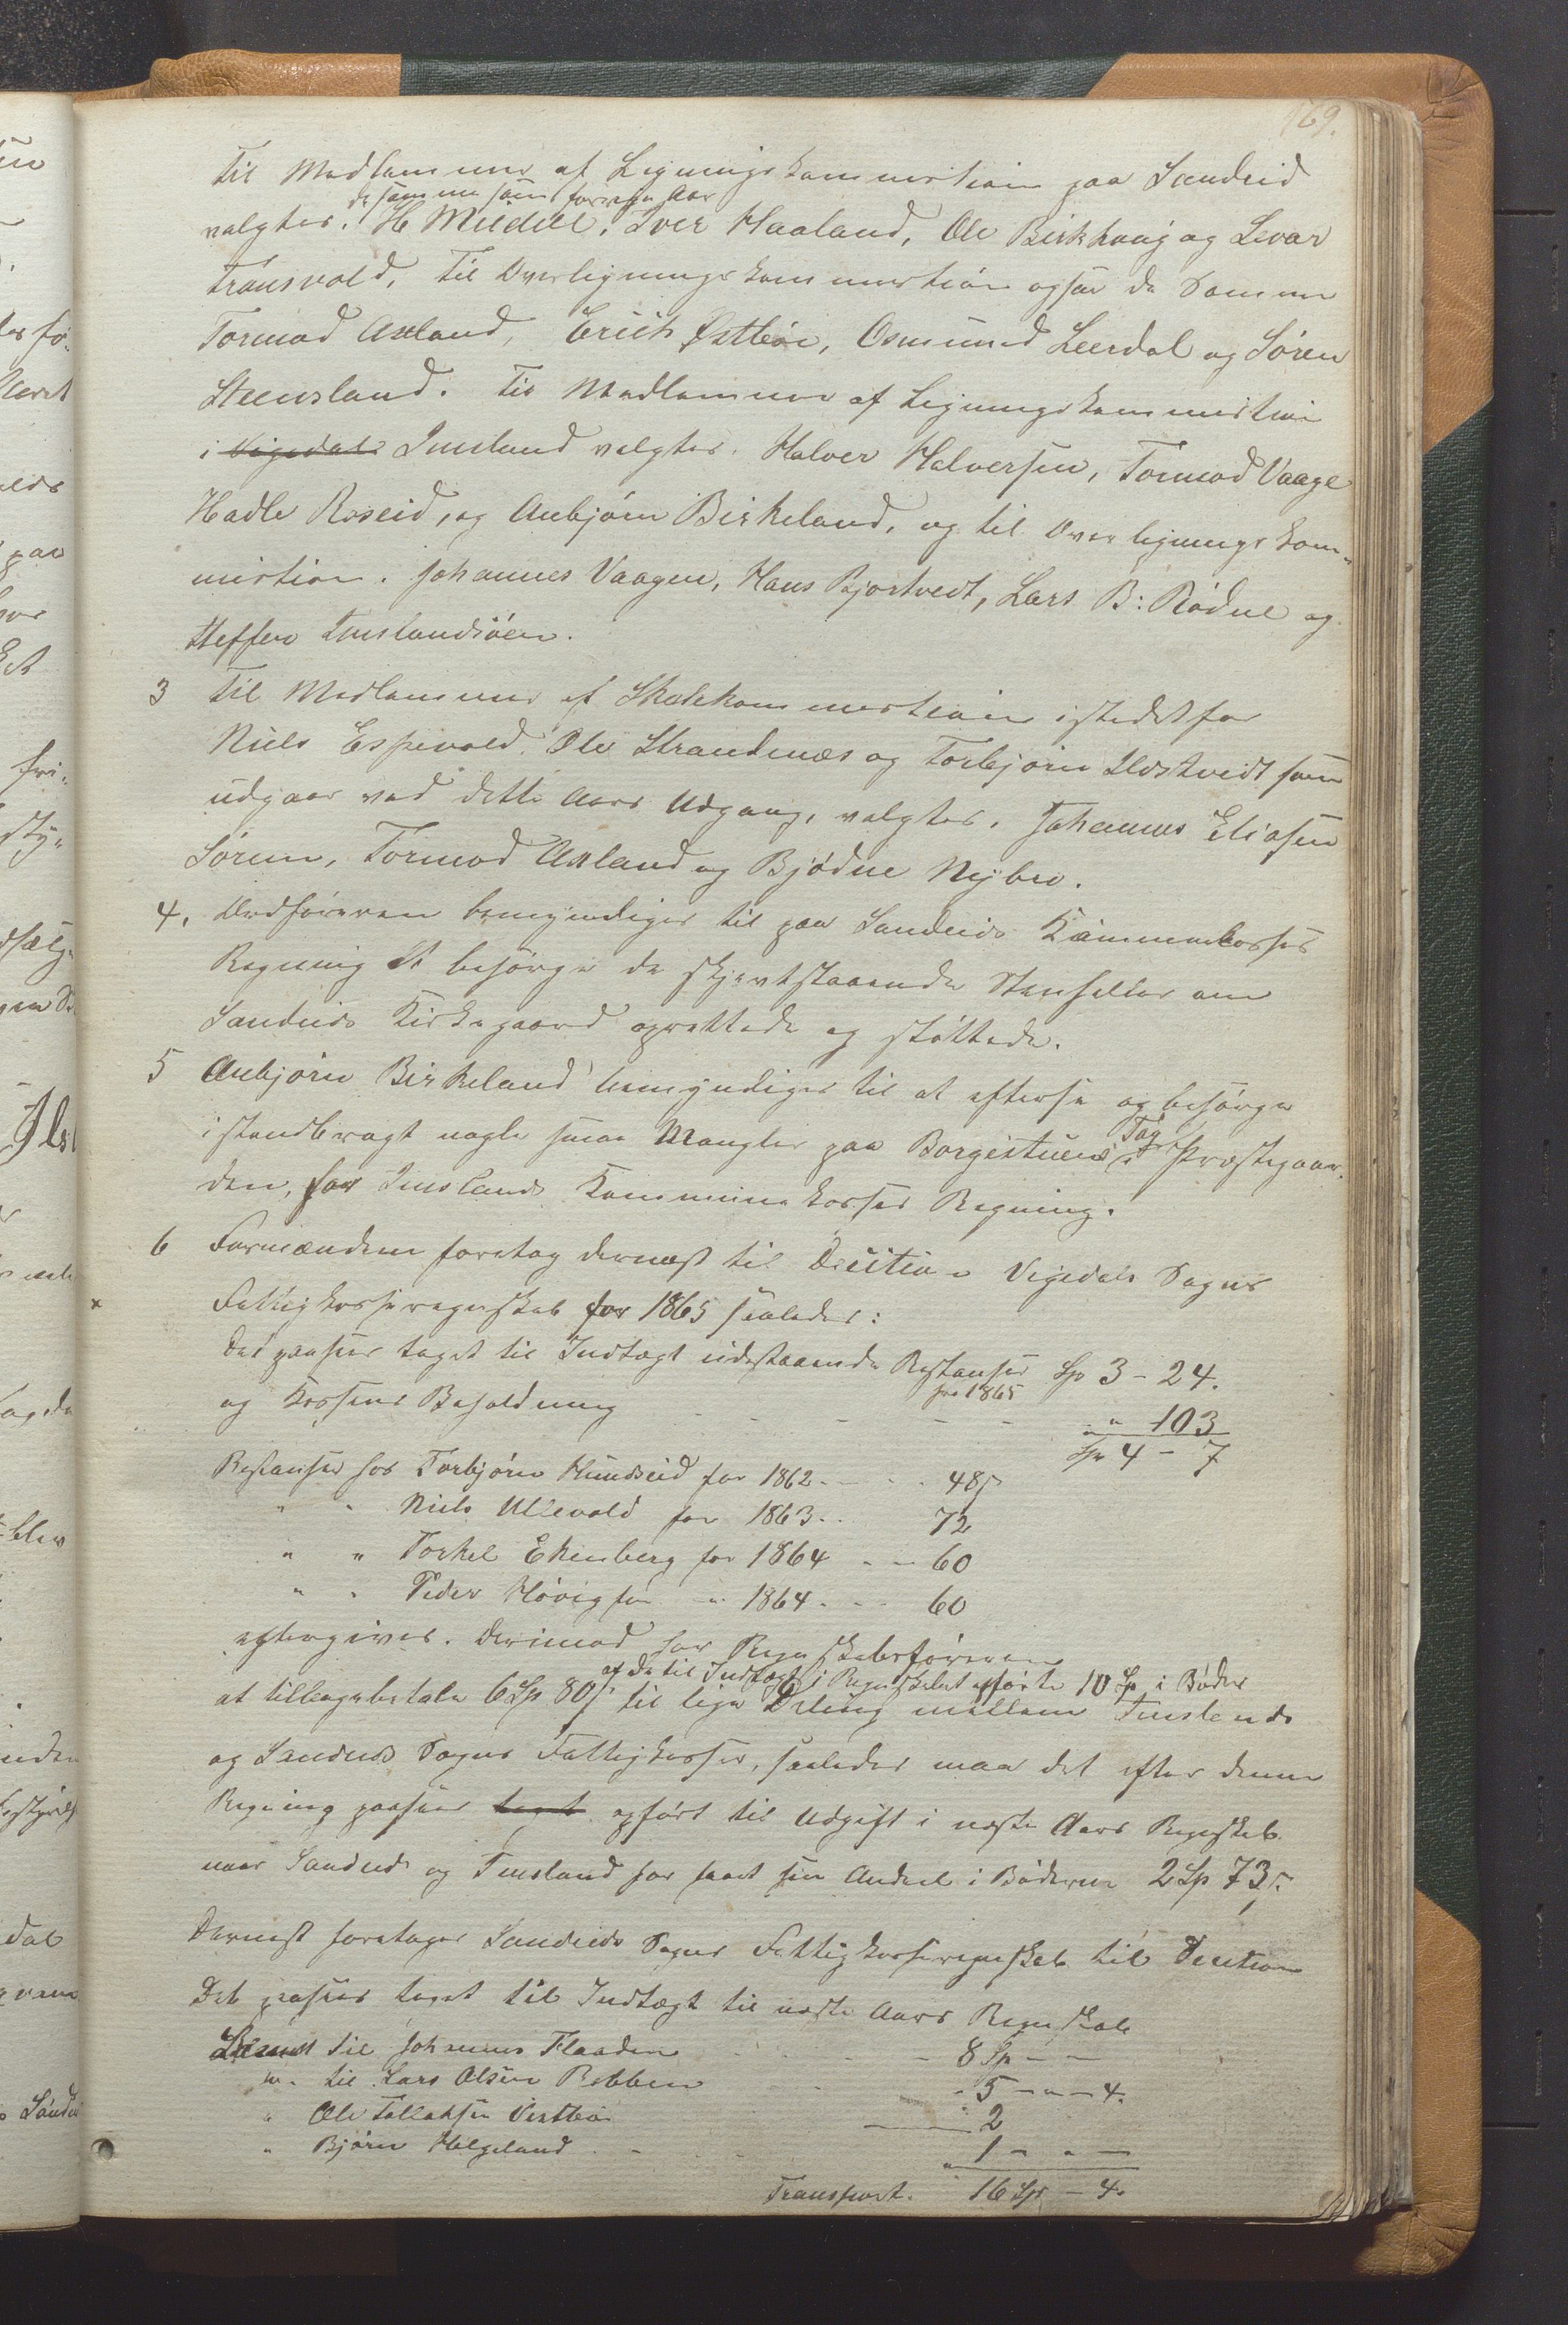 169.
Til Medlemmer af Ligningskommistion paa Sandeid
de samme som forrige Aar
valgtes. H Meidell, Iver Haaland, Ole Birkhaug og Levar
Transvold. Til Overligningskommistion ogsaa de Samme
Tormod Axland, Erich Østbøe, Osmund Leerdal og Søren
Steensland. Til Medlemmer af Ligningskommistion
i Vigedals Imsland valgtes. Halver Halversen, Tormod Vaage
Hadle Roseid, og Anbjørn Birkeland, og til Overligningskom-
mistion. Johannes Vaagen, Hans Bjortvedt, Lars B: Rødne og
Steffen Imslandsøen.
3 Til Medlemmer af Skolekommistion istedetfor
Niels Espevold. Ole Strandenæs og Torbjørn Ilstveidt som
udgaar ved dette Aars Udgang, valgtes. Johannes Eliasen
Søren, Tormod Axland og Bjødne Nybro.
4. Ordføreren bemyndiges til paa Sandeids Kommunekasses
Regning At besørge de skjevtstaaende Stenheller om
Sandeids Kirkegaard oprettede og støttede.
5 Anbjørn Birkeland bemyndiges til at efterse og besørge
istandbragt nogle smaa Mangler paa Borgestuens Tag i Præstegaar-
den, for Imslands Kommunekasses Regning.
6 Formændene foretog dernæst til Decition Vigedals Sogns
Fattigkasseregnskab for 1865 saaledes:
Det paasees taget til Indtægt udestaaende Restanser Sp 3 - 24.
for 1865
og Kassens Beholdning - - - - - " 103
Sp 4 - 7
Restanser hos Torbjørn Kundseid for 1862 - - - 48 s
" " Niels Ullevold for 1863 - - 72
" " Torkel Ekenberg for 1864 - - 60
" " Peder Høvig for " 1864 - - 60
eftergives. Derimod har Regnskabsføreren
af de til Indtægt i Regnskabet opførte 10 Sp i Bøder
at tilbagebetale 6 Sp 80 s til lige Deling mellem Imslands
og Sandeids Sogns Fattigkasser, saaledes maa det efter denne
Regning paasees taget opført til Udgift i næste Aars Regnskab
naar Sandeid og Imsland har faaet sin Andeel i Bøderne 2 Sp 73 s.
Dernæst foretages Sandeids Sogns Fattigkasseregnskab til Decition
Det paasees taget til Indtægt til næste Aars Regnskab
til Johannes Flaaden - - - - 8 Sp - -
" til Lars Olsen Robben - " 5 - " - 4.
" Ole Tollaksen Vestbøe " 2
" Bjørn Helgeland - - 1 - " -
Transport. 16 Sp - 4.